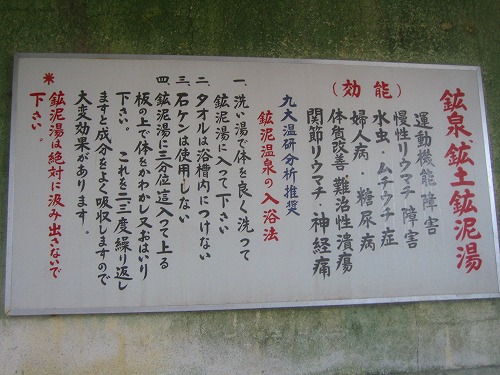 鉱泉鉱土鉱泥湯
(効能)
運動機能障害
慢性リウマチ障害
水虫・ムチウチ症
婦人病・糖尿病
体質改善難治性潰瘍
関節リウマチ・神経痛
九大温研分析推奨
鉱泥温泉の入浴法
一、洗い湯で体を良く洗って
鉱泥湯に入って下さい
二、タオルは浴槽内につけない
三、石ケンは使用しない
四、鉱泥湯に三分位這入って上る
板の上で体をかわかし又おはいり
下さい。これを二、三度繰り返し
ますと成分をよく吸収しますので
大変効果があります。
※鉱泥湯は絶対に汲み出さないで
下さい。